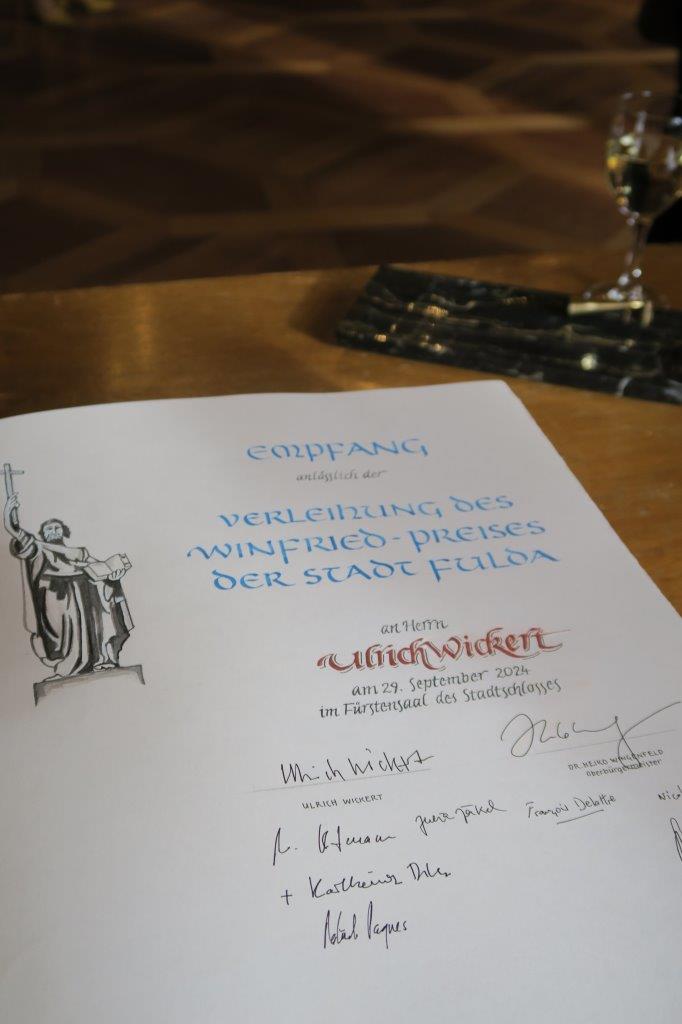 EMPFANG
anlässlich der
VERLEIHUNG DES
WINFRIED-PREISES
DER STADT FULDA
an Herrn
Ulrich Wickert
am 29. September 2024
im Fürstensaal des Stadtschlosses
Ulrich Wickert
ULRICH WICKERT
DR. HEIKO WINGENFELD
Oberbürgermeister
François Delattre
+ Karlheinz